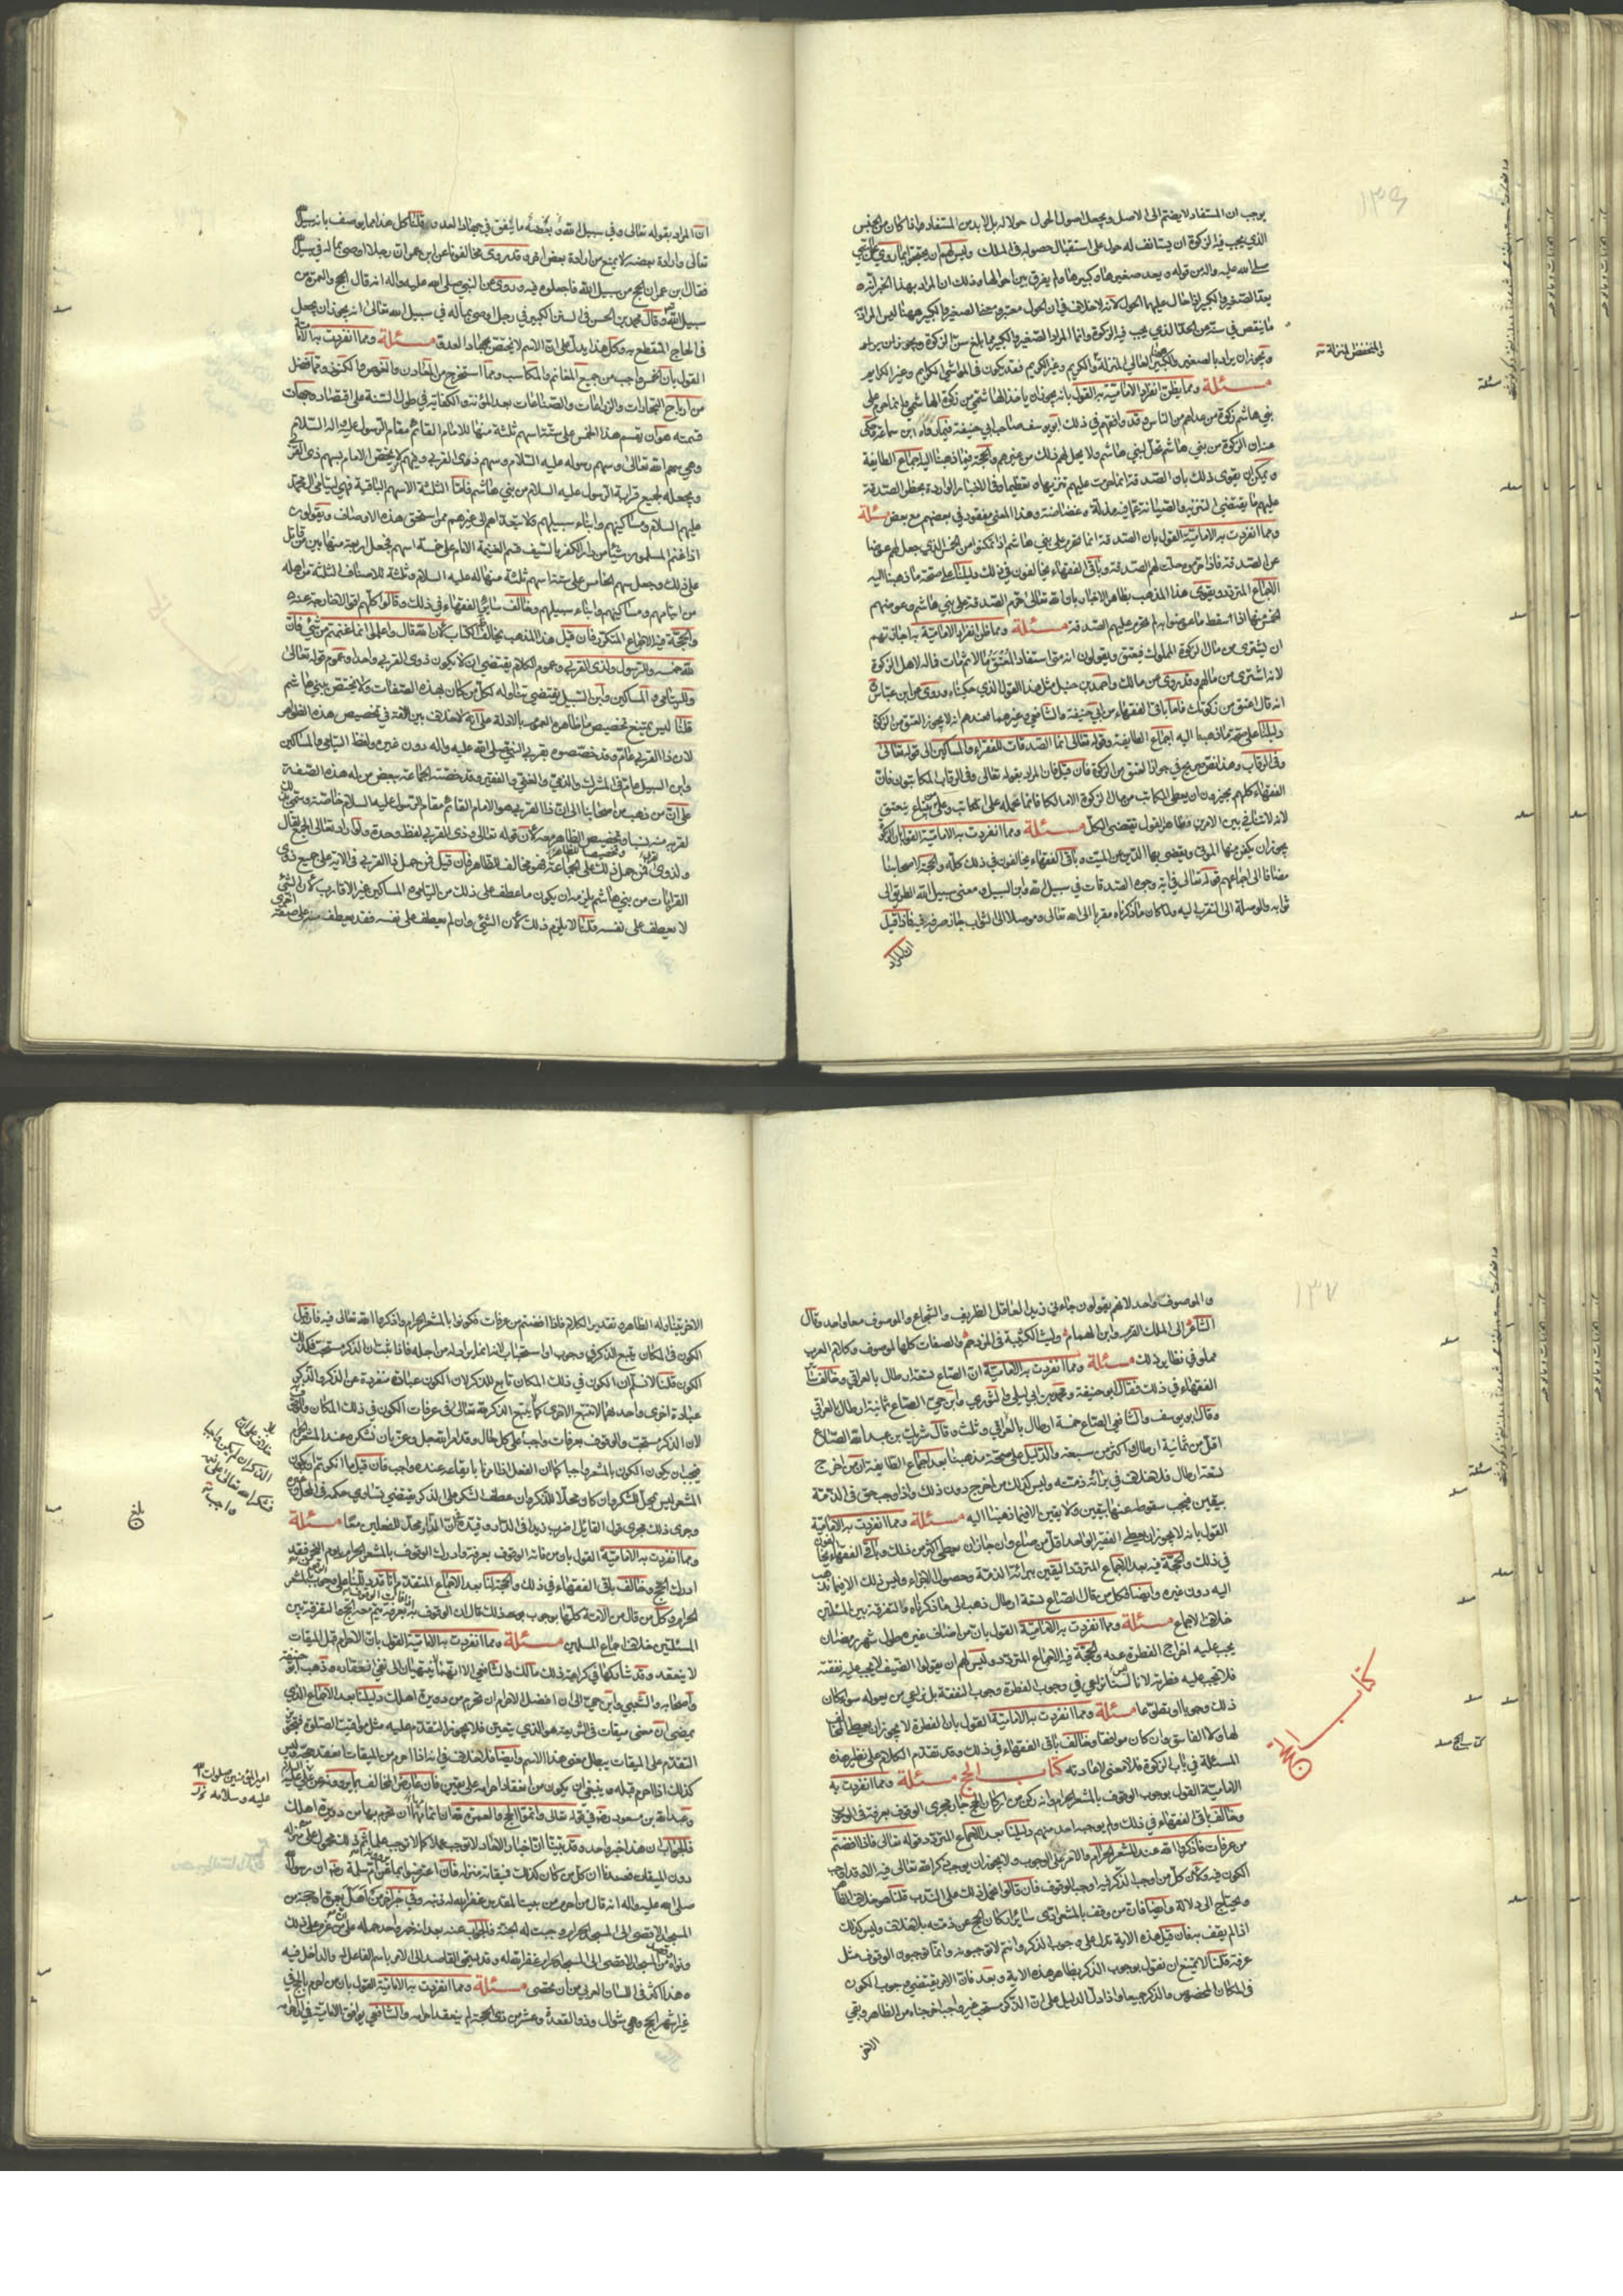 ١٣٦
يوجب ان المستفاد لا يضم الى الاصل ويجعل اصول الحول حولا له بل لا بد من المستفاد اذا كان من الجنس
الذي يجب فيه الزكوة ان يستانف له حول على استقبال حصوله في الملك وليس لهم ان يتعلقوا بما روي عن النبي
صلى الله عليه واله من قوله ويعد صغيرها وكبيرها ولم يفرق بين احوالها وذلك ان المراد بهذا الخبر انه
يعد الصغير والكبير اذا حال عليهما الحول لانه لا خلاف في ان الحول معتبر
ما ينقص في سنه عن الحد الذي يجب فيه الزكوة وانما المراد الصغير والكبير مما بلغ سن الزكوة
ويجوز ان يراد بالصغير والكبير العالي المنزلة والكريم وغير الكريم فقد يكون في المواشي الكرايم وغير الكرايم
والمنخفض المنزلة
مسئلة ومما يظن انفراد الامامية به القول بانه يجوز ان ياخذ الهاشمي من زكوة الهاشمي وانما حرم على
بني هاشم زكوة من عداهم من الناس وقد وافقهم في ذلك ابو يوسف صاحب ابي حنيفة فيما رواه ابن سماعة فحكى
عنه ان الزكوة من بني هاشم تحل لبني هاشم ولا يحل لهم ذلك من غيرهم والحجة فيما ذهبنا اليه اجماع الطايفة
ويمكن ان يقوى ذلك بان الصدقة انما حرمت عليهم تنزيها وتعظيما وفي الاخبار الواردة بحظر الصدقة
عليهم ما يقتضي التنزيه والصيانة عما فيه مذلة وغضاضة وهذا المعنى مفقود في بعضهم مع بعض مسئلة
ومما انفردت به الامامية القول بان الصدقة انما تحرم على بني هاشم اذا تمكنوا من الخمس الذي جعل لهم عوضا
عن الصدقة فاذا حرموه حلت لهم الصدقة وباقي الفقهاء يخالفون في ذلك دليلنا على صحة ما ذهبنا اليه
الاجماع المتردد ويقوى هذا المذهب بظاهر الاخبار بان الله تعالى حرم الصدقة على بني هاشم وعوضهم
الخمس منها فاذا سقط ما عوضوا به لم تحرم عليهم الصدقة مسئلة ومما ظن انفراد الامامية به اجازتهم
ان يشترى من مال الزكوة المملوك فيعتق ويقولون انه متى استفاد المعتق مالا ثم مات فماله لاهل الزكوة
لانه اشترى من مالهم وقد روى عن مالك واحمد بن حنبل مثل هذا القول الذي حكيناه وروى عن ابن عباس
انه قال اعتق من زكوتك فاما باقي الفقهاء من ابي حنيفة والشافعي وغيرهما فعندهم انه لا يجوز العتق من الزكوة
دليلنا على صحة ما ذهبنا اليه اجماع الطايفة وقوله تعالى انما الصدقات للفقراء والمساكين الى قوله تعالى
وفي الرقاب وهذا نص صريح في جواز العتق من الزكوة فان قيل فان المراد بقوله تعالى وفي الرقاب المكاتبون فان
الفقهاء كلهم يجيزون ان يعطي المكاتب من مال الزكوة الا مالكا قلنا نحمله على المكاتب وعلى من يبتاع فيعتق
لانه لا تنافي بين الامرين وظاهر القول يقتضي الكل مسئلة ومما انفردت به الامامية القول بان الزكوة
يجوز ان يكفن منها الموتى ويقضى بها الدين عن الميت وباقي الفقهاء يخالفون في ذلك كله والحجة لاصحابنا
مضافا الى اجماعهم قوله تعالى في اية وجوه الصدقات في سبيل الله وابن السبيل ومعنى سبيل الله الطريق الى
ثوابه والوصلة الى التقرب اليه ولما كان ما ذكرناه مقربا الى الله تعالى وموصلا الى الثواب جاز صرفه فيه فاذا قيل
ان المراد
ان المراد بقوله تعالى وفي سبيل الله ما ينفق في جهاد العدو قلنا كل هذا مما يوصف بانه سبيل الله
تعالى وارادة بعضه لا يمنع من ارادة بعض اخر وقد روى مخالفونا عن ابن عمر ان رجلا اوصى بماله في سبيل الله
فقال ابن عمر ان الحج من سبيل الله فاجعلوه فيه وروى عن النبي صلى الله عليه واله انه قال الحج والعمرة من
سبيل الله وقال محمد بن الحسن في السير الكبير في رجل اوصى بماله في سبيل الله تعالى انه يجوز ان يجعل
في الحاج المنقطع به وكل هذا يدل على ان الاسم لا يختص بجهاد العدو مسئلة ومما انفردت به الامامية
القول بان الخمس واجب من جميع المغانم والمكاسب ومما استخرج من المعادن والغوص والكنوز ومما فضل
من ارباح التجارات والزراعات والصناعات بعد المؤنة والكفاية في طول السنة على اقتصاد وجهات
قسمته هو ان يقسم هذا الخمس على ستة اسهم ثلثة منها للامام القائم مقام الرسول عليه السلام
وهي سهم الله تعالى وسهم رسوله عليه السلام وسهم ذوي القربى ومنهم من لا يخص الامام بسهم ذي القربى
ويجعله لجميع قرابة الرسول عليه السلام من بني هاشم فاما الثلثة الاسهم الباقية فهي ليتامى ال محمد
عليهم السلام ومساكينهم وابناء سبيلهم ولا تتعداهم الى غيرهم ممن استحق هذه الاوصاف ويقولون
اذا غنم المسلمون شيئا من دار الكفر بالسيف قسم الغنيمة الامام على خمسة اسهم فجعل اربعة منها بين من قاتل
على ذلك وجعل سهم الخامس على ستة اسهم ثلثة منها له عليه السلام وثلثة للاصناف الثلثة من اهله
من ايتامهم ومساكينهم وابناء سبيلهم وخالف سائر الفقهاء في ذلك وقالوا كلهم اقوالا خارجة عنه
والحجة فيه الاجماع المتكرر فان قيل هذا المذهب يخالف الكتاب لان الله قال واعلموا انما غنمتم من شئ فان
لله خمسه وللرسول ولذي القربى وعموم الكلام يقتضي ان لا يكون ذوي القربى واحدا وعموم قوله تعالى
واليتامى والمساكين وابن السبيل يقتضي تناوله لكل من كان بهذه الصفات ولا يختص ببني هاشم
قلنا ليس يمتنع تخصيص ما ظاهره العموم بالادلة على انه لا خلاف بين الامة في تخصيص هذه الظواهر
لان ذا القربى عام وقد خصصوه بقربى النبي صلى الله عليه واله دون غيره ولفظ اليتامى والمساكين
وابن السبيل عام في المشرك والذمي والغني والفقير وقد خصته الجماعة ببعض من له هذه الصفة
على ان من ذهب من اصحابنا الى ان ذا القربى هو الامام القائم مقام الرسول عليه السلام خاصة وسمي بذلك
لقربه منه نسبا وتخصيصا الظاهر معه لان قوله تعالى وذي القربى لفظ وحدة ولو اراد تعالى الجمع لقال
ولذوي القربى فمن حمل ذلك على الجماعة فهو مخالف للظاهر فان قيل فمن حمل ذا القربى في الاية على جميع ذوي
القرابات من بني هاشم يلزمه ان يكون ما عطف على ذلك من اليتامى والمساكين غير الاقارب لان الشئ
لا يعطف على نفسه قلنا لا يلزم ذلك لان الشئ وان لم يعطف على نفسه فقد يعطف صفة على صفة اخرى
١٣٧
والموصوف واحد لانهم يقولون جاءني زيد العاقل الظريف والشجاع والموصوف معا واحد وقال
الشاعر الى الملك القرم وابن الهمام وليث الكتيبة في المزدحم والصفات كلها لموصوف وكلام العرب
مملو في نظاير ذلك مسئلة ومما انفردت به الامامية ان الصاع تسعة ارطال بالعراقي وخالف سائر
الفقهاء في ذلك فقال ابو حنيفة ومحمد وابن ابي ليلى والثوري وابن حي الصاع ثمانية ارطال بالعراقي
وقال ابو يوسف والشافعي الصاع خمسة ارطال بالعراقي وثلث وقال شريك بن عبد الله الصاع
اقل من ثمانية ارطال واكثر من سبعة والدليل على صحة مذهبنا بعد اجماع الطايفة ان من اخرج
تسعة ارطال فلا خلاف في براءة ذمته وليس كذلك من اخرج دون ذلك واذا وجب حق في الذمة
بيقين فيجب سقوطه عنها بيقين ولا يقين الا فيما ذهبنا اليه مسئلة ومما انفردت به الامامية
القول بانه لا يجوز ان يعطى الفقير الواحد اقل من صاع وان جاز ان يعطى اكثر من ذلك وباقي الفقهاء يخالفون
في ذلك والحجة فيه بعد الاجماع المتردد اليقين ببراءة الذمة وحصول الاجزاء وليس ذلك الا فيما نذهب
اليه دون غيره وايضا فكل من قال الصاع تسعة ارطال ذهب الى ما ذكرناه والتفرقة بين المسئلتين
خلاف الاجماع مسئلة ومما انفردت به الامامية القول بان من اضاف غيره طول شهر رمضان
يجب عليه اخراج الفطرة عنه والحجة فيه الاجماع المتردد وليس لهم ان يقولوا الضيف لا يجب عليه نفقته
فلا تجب عليه فطرته لانا لسنا نراعي في وجوب الفطرة وجوب النفقة بل نراعي من يعوله سواء كان
ذلك وجوبا او تطوعا مسئلة ومما انفردت به الامامية القول بان الفطرة لا يجوز ان يعطى المخالف
لها ولا الفاسق وان كان موافقا وخالف باقي الفقهاء في ذلك وقد تقدم الكلام على نظير هذه
المسئلة في باب الزكوة فلا معنى لاعادته كتاب الحج مسئلة ومما انفردت به
الامامية القول بوجوب الوقوف بالمشعر الحرام وانه ركن من اركان الحج جار مجرى الوقوف بعرفة في الوجوب
وخالف باقي الفقهاء في ذلك ولم يوجبه احد منهم دليلنا بعد الاجماع المتردد قوله تعالى فاذا افضتم
من عرفات فاذكروا الله عند المشعر الحرام والامر على الوجوب ولا يجوز ان يوجب ذكر الله تعالى فيه الا وقد اوجب
الكون فيه ولان كل من اوجب الذكر فيه اوجب الوقوف فان قالوا نحمل ذلك على الندب قلنا هو خلاف الظاهر
ويحتاج الى دلالة وايضا فان من وقف بالمشعر وادى سائر اركان الحج عن ذمته بلا خلاف وليس كذلك
اذا لم يقف به فان قيل هذه الاية تدل على وجوب الذكر وانتم لا توجبونه وانما توجبون الوقوف مثل
عرفة قلنا لا يمتنع ان نقول بوجوب الذكر بظاهر هذه الاية وبعد فان الامر يقتضي وجوب الكون
في المكان المخصوص والذكر جميعا واذا دل الدليل على ان الذكر مستحب غير واجب اخرجناه من الظاهر وبقي
الاخر
كتاب الحج
الاخر يتناوله الظاهر وتقدير الكلام فاذا افضتم من عرفات فكونوا بالمشعر الحرام واذكروا الله تعالى فيه فان قيل
الكون في المكان يتبع الذكر في وجوب او استحباب لانه انما يراد له ومن اجله فاذا ثبت ان الذكر مستحب فكذلك
الكون قلنا لا نسلم ان الكون في ذلك المكان تابع للذكر لان الكون عبادة منفردة عن الذكر والذكر
عبادة اخرى واحدهما لا تتبع الاخرى كما لا يتبع الذكر لله تعالى في عرفات الكون في ذلك المكان والوقوف به
لان الذكر مستحب والوقوف بعرفات واجب على كل حال وقد امر الله جل وعز بان نشكره عند المشعر الحرام
فيجب ان يكون الكون بالمشعر واجبا كما ان الفعل الذي امرنا بايقاعه عنده واجب فان قيل ما انكرتم ان يكون
المشعر ليس بمحل للشكر وان كان محلا للذكر وان عطف الشكر على الذكر يقتضي تساوي حكمه في المحل وغيره
وجرى ذلك مجرى قول القائل اضرب زيدا في الدار وقيده في ان الدار محل للفعلين معا مسئلة
ومما انفردت به الامامية القول بان من فاته الوقوف بعرفة وادرك الوقوف بالمشعر الحرام يوم النحر فقد
ادرك الحج وخالف باقي الفقهاء في ذلك والحجة لنا بعد الاجماع المتقدم
الحرام وكل من قال من الامة كلها بوجوب ذلك قال ان الوقوف به يتم معه الحج والتفرقة بين
المسئلتين خلاف اجماع المسلمين مسئلة ومما انفردت به الامامية القول بان الاحرام قبل الميقات
لا ينعقد وقد شاركها في كراهية ذلك مالك والشافعي الا انهما لا ينتهيان الى نفي انعقاده وذهب ابو حنيفة
واصحابه والشعبي وابن حي الى ان افضل الاحرام ان تحرم من دويرة اهلك دليلنا بعد الاجماع الذي
يمضى ان معنى ميقات في الشريعة هو الذي يتعين فلا يجوز التقدم عليه مثل مواقيت الصلوة فتجويز
التقدم على الميقات يبطل معنى هذا الاسم وايضا فلا خلاف في انه اذا احرم من الميقات انعقد حجه وليس
كذلك اذا احرم قبله وينبغي ان يكون من انعقاد احرامه على يقين فان عارض المخالف بما يروونه عن علي عليه السلام
وعبد الله بن مسعود رضي الله عنه في قوله تعالى واتموا الحج والعمرة لله ان اتمامهما ان تحرم بهما من دويرة اهلك
فالجواب ان هذا خبر واحد وقد بينا ان اخبار الاحاد لا توجب عملا كما لا توجب علما ثم ذلك محمول على من منزله
دون الميقات فعندنا ان كل من كان كذلك فميقاته منزله فان اعترضوا بما يروى عن ام سلمة رضي الله عنها ان رسول الله
صلى الله عليه واله انه قال من احرم من بيت المقدس غفر الله له ذنبه وفي خبر اخر من اهل بعمرة او حجة من
المسجد الاقصى الى المسجد الحرام وجبت له الجنة فالجواب عنه بعد انه خبر واحد حمله على من عزم على ذلك
ونواه من المسجد الاقصى الى المسجد الحرام غفر الله له وقد يسمى القاصد الى الامر باسم الفاعل له والداخل فيه
وهذا اكثر في اللسان العربي من ان يحصى مسئلة ومما انفردت به الامامية القول بان من احرم بالحج في
غير اشهر الحج وهي شوال وذو القعدة وعشر من ذي الحجة لم ينعقد احرامه والشافعي يوافق الامامية في ان احرامه
امير المؤمنين صلوات الله
عليه وسلامه
بلغ